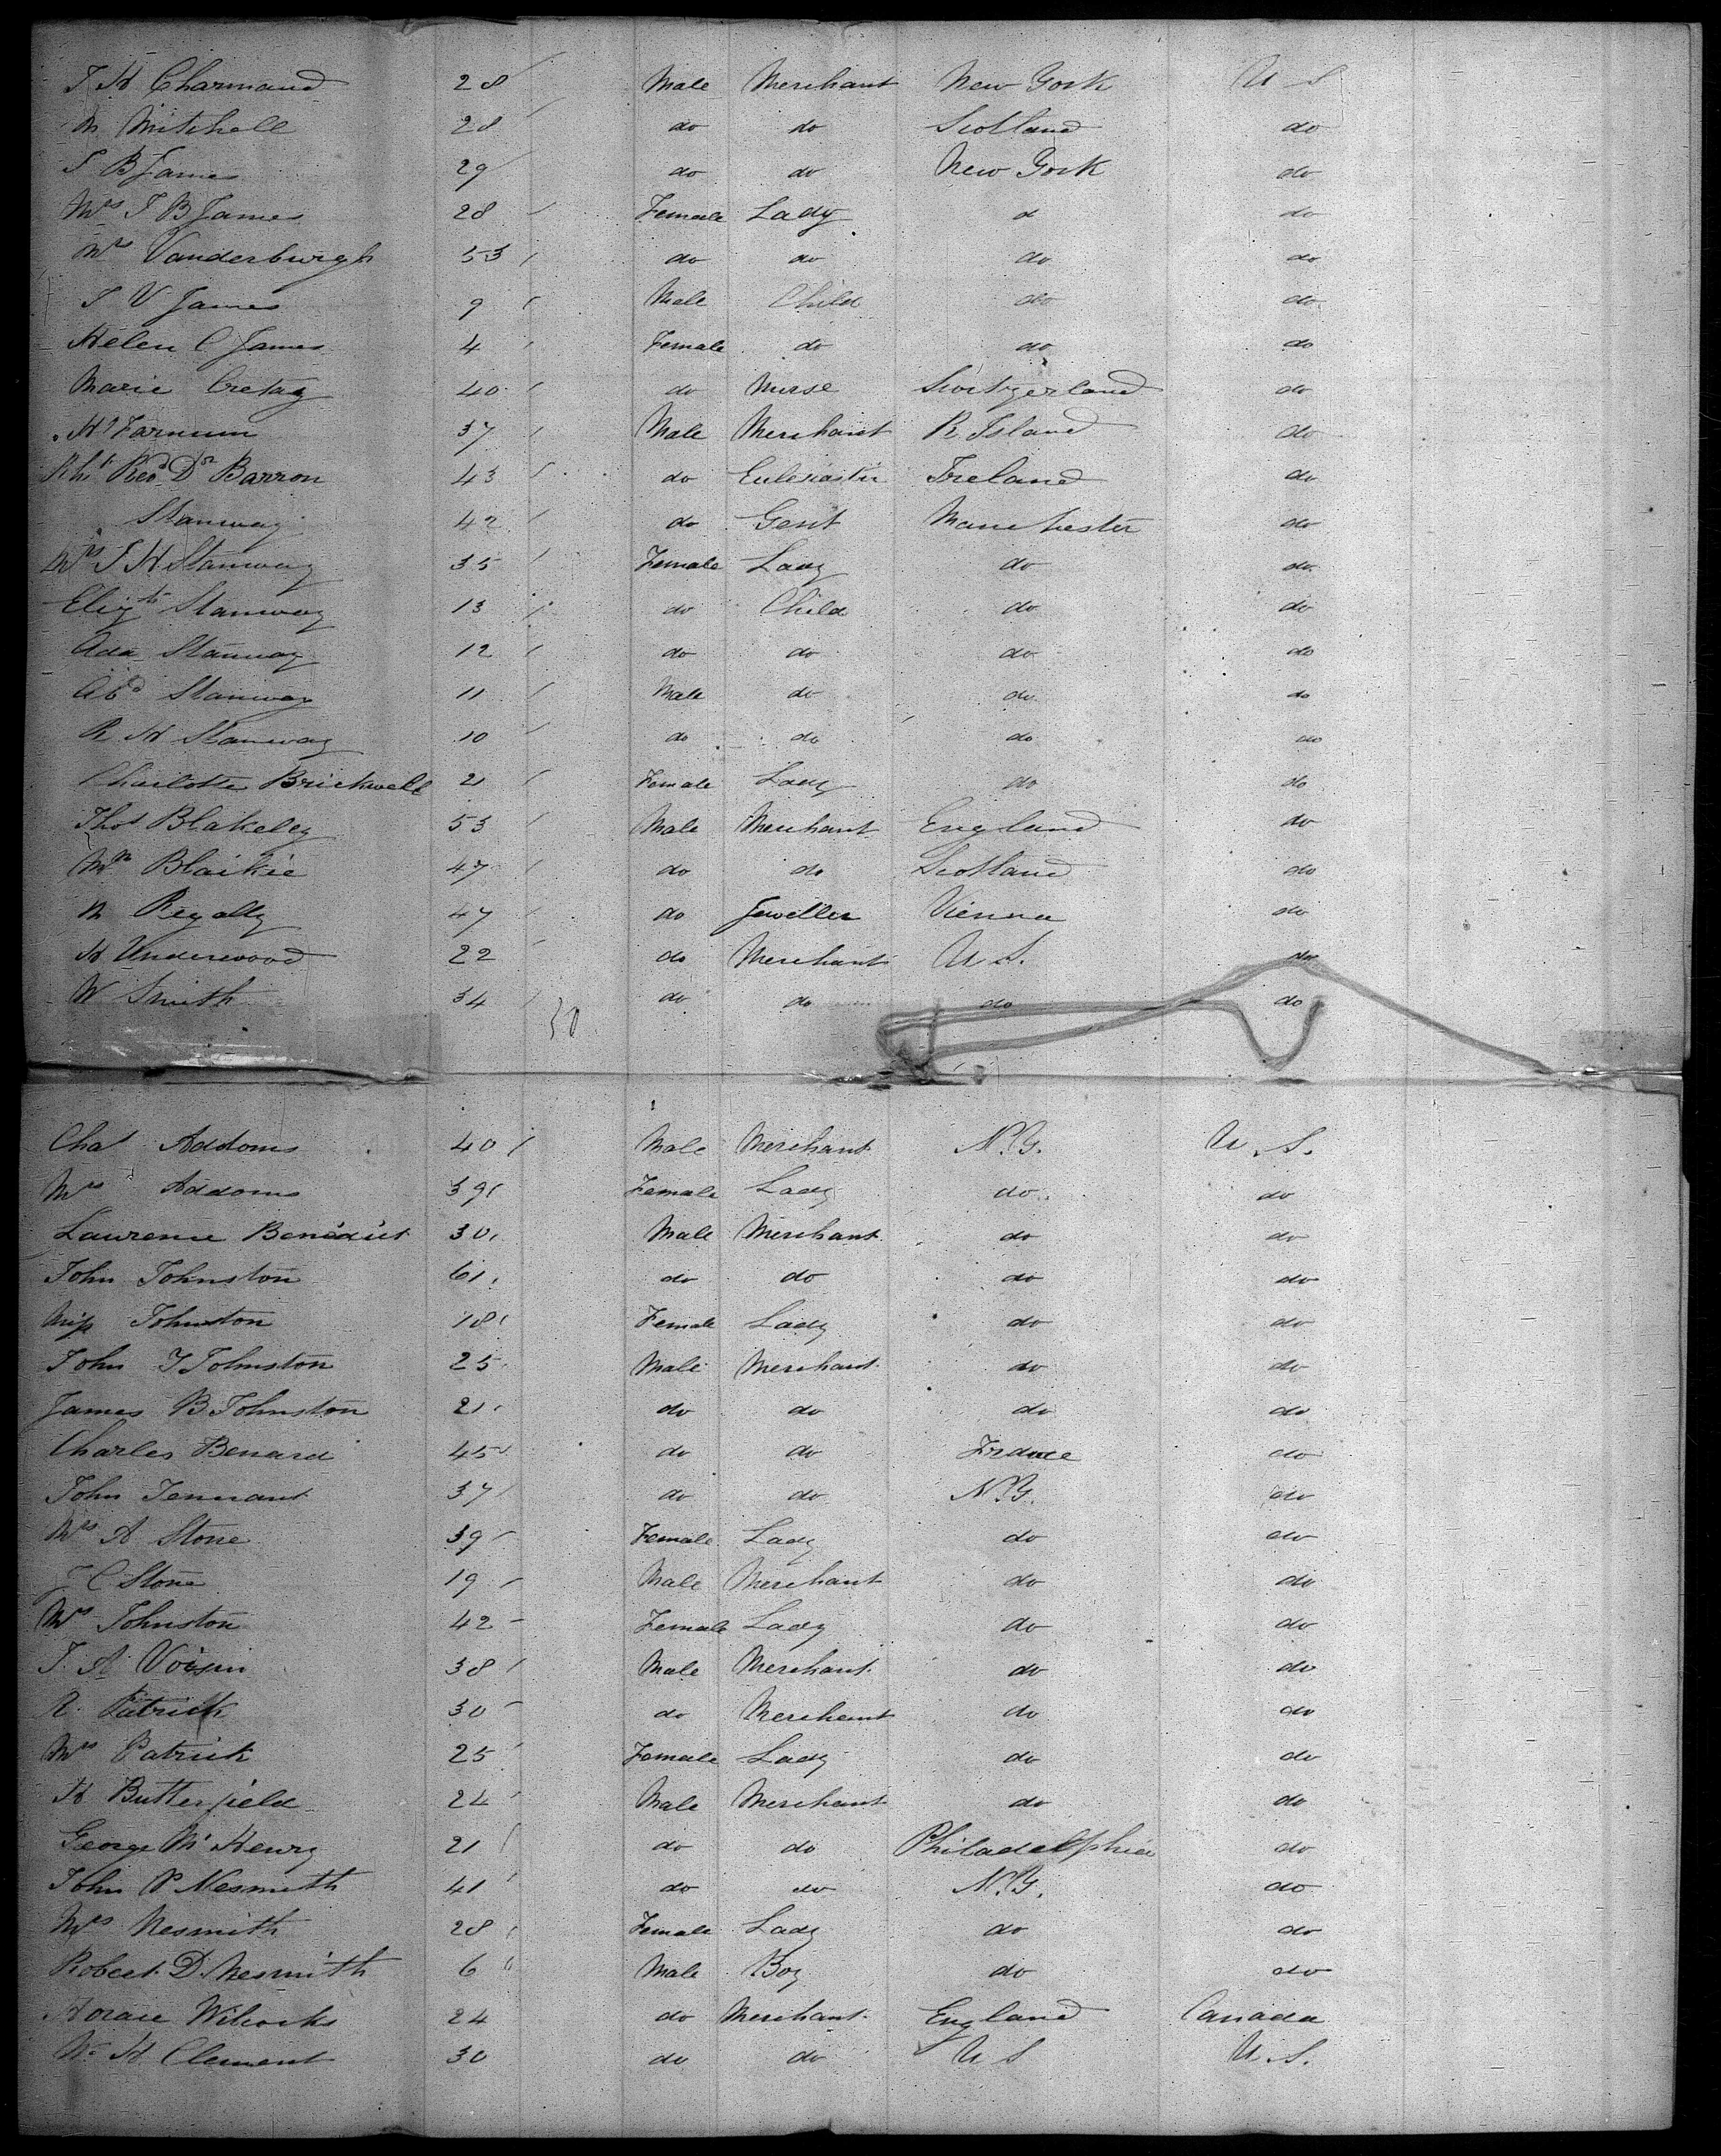 T H Charmaud 28 Male Merchant New York U S
M Mitchell 28 do do Scotland do
T B James 29 do do New York do
Mrs T B James 28 Female Lady d do
Mrs Vanderburgh 53 do do do do
T V James 9 Male Child do do
Helen C James 4 Female do do do
Marie Cretag 40 do Nurse Switzerland do
H Farnum 37 Male Merchant R Island do
Rht Revd Dr Barron 43 do Eclesiastic Ireland do
Stanway 42 do Gent Manchester do
Mrs S H Stanway 35 Female Lady do do
Elizth Stanway 13 do Child do do
Ada Stanway 12 do do do do
Abd Stanway 11 Male do do do
R H Stanway 10 do do do do
Charlotte Brickwell 21 Female Lady do do
Thos Blakeley 53 Male Merchant England do
Mr Blaikie 47 do do Scotland do
M Regally 47 do Jeweller Vienna do
H Underwood 22 do Merchant U S. do
W Smith 34 do do do do
50
Chas Addoms 40 Male Merchant N.Y. U.S.
Mrs Addoms 39 Female Lady do do
Lawrence Benedict 30 Male Merchant do do
John Johnston 61 do do do do
Miss Johnston 18 Female Lady do do
John T Johnston 25 Male Merchant do do
James B Johnston 21 do do do do
Charles Benard 45 do do France do
John Tennant 37 do do N.Y. do
Mrs A Stone 39 Female Lady do do
J C Stone 19 Male Merchant do do
Mrs Johnston 42 Female Lady do do
T. A Voisin 38 Male Merchant do do
R. Patrick 30 do Merchant do do
Mrs Patrick 25 Female Lady do do
H Butterfield 24 Male Merchant do do
George McHenry 21 do do Philadelphia do
John P Nesmith 41 do do N.Y. do
Mrs Nesmith 28 Female Lady do do
Robert D. Nesmith 6 Male Boy do do
Horace Wilcocks 24 do Merchant England Canada
W. H Clement 30 do do U S U.S.